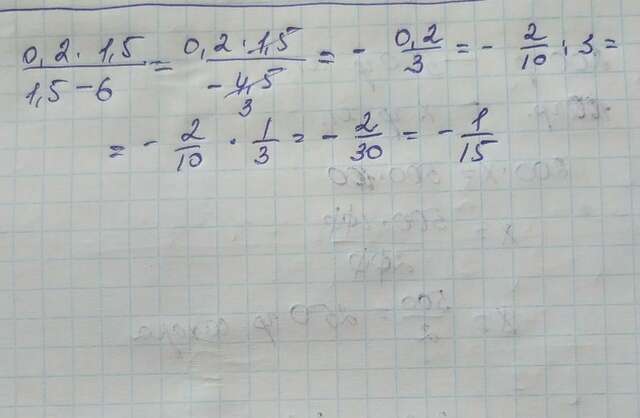 0,2 · 1,5 / 1,5 − 6 = 0,2 · 1,5 / − 4,5 3 = − 0,2 / 3 = − 2/10 : 3 =
= − 2/10 · 1/3 = − 2/30 = − 1/15